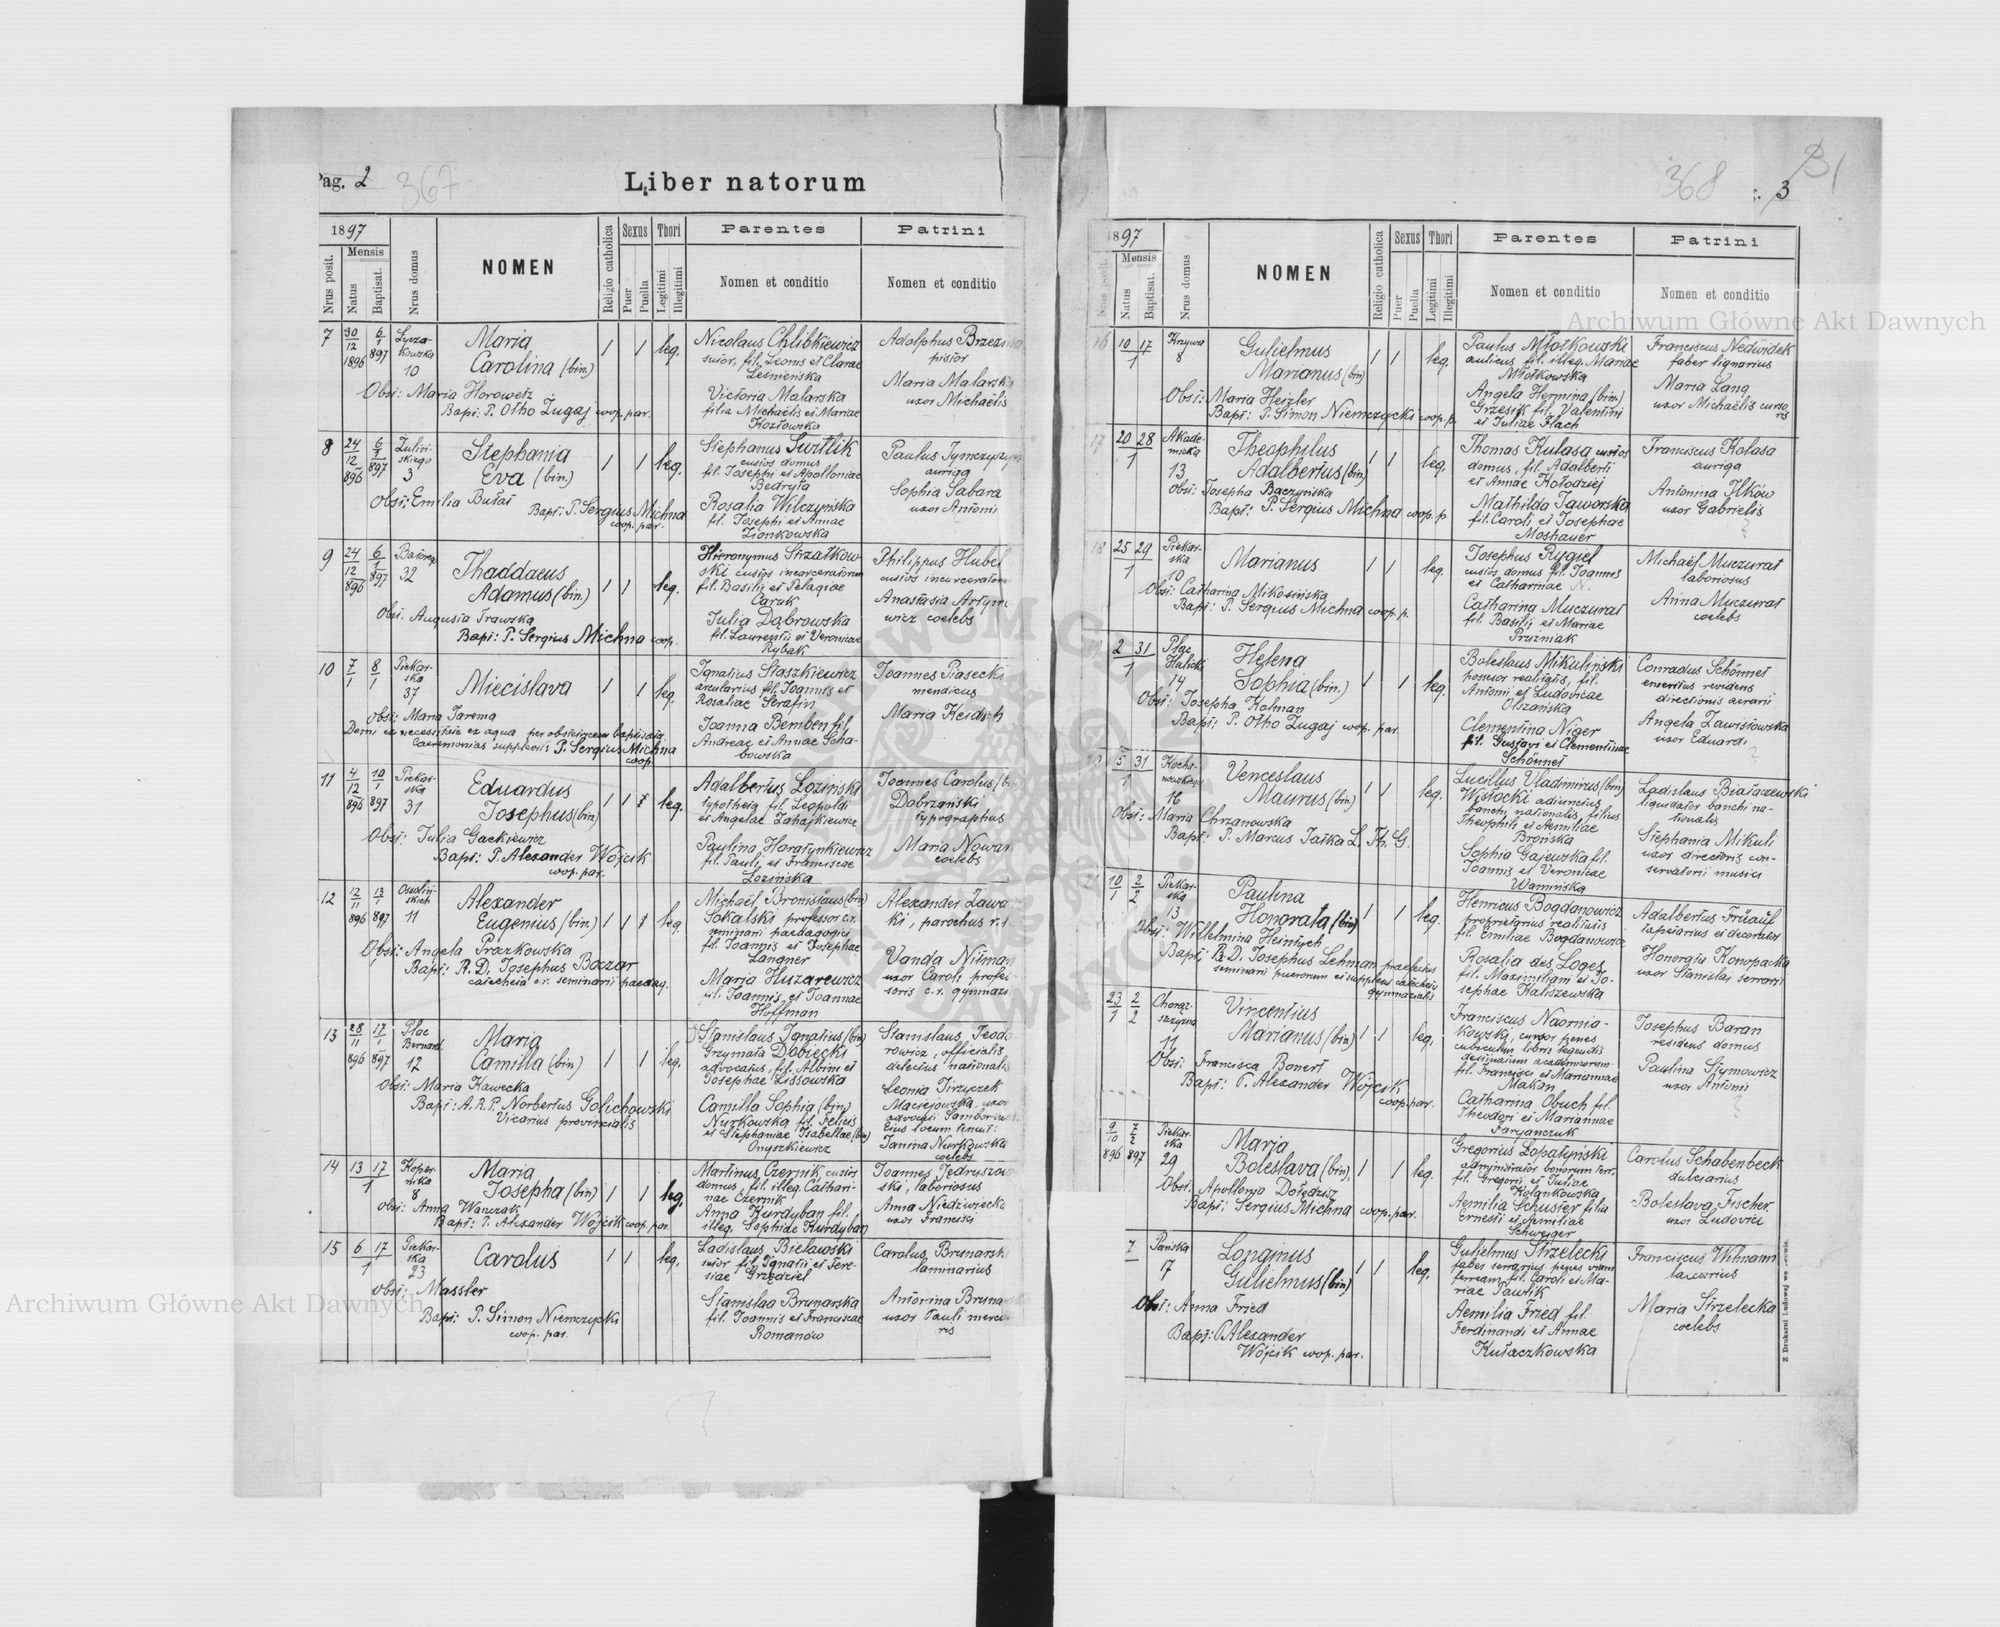 Pag. 2
367
Liber natorum
1897
Nrus posit.
Mensis
Natus
Baptisat.
Nrus domus
NOMEN
Religio catholica
Sexus
Puer
Puella
Thori
Legitimi
Illegitimi
Parentes
Nomen et conditio
Patrini
Nomen et conditio
7 30/12 1896 6/1 897 Łycza-
kowska
10
Maria
Carolina (bin.)
1 1 leg.
Obst: Maria Horowetz
Bapt: P. Otho Zugaj coop. par.
Nicolaus Chlibkiewicz
sutor, fil. Leonis et Clarae
Leśnieńska
Victoria Malarska
filia Michaëlis et Mariae
Kozłowska
Adolphus Brzezin
pistor
Maria Malarska
uxor Michaëlis
8 24/12 896 6/1 897 Zuliń-
skiego
3
Stephania
Eva (bin.)
1 1 leg.
Obst: Emilia Butat
Bapt: P. Sergius Michna
coop. par.
Stephanus Switlik
custos domus
fil. Josephi et Apolloniae
Bedryła
Rosalia Wilczyńska
fil. Josephi et Annae
Zionkowska
Paulus Tymczyszyn
auriga
Sophia Sabara
uxor Antonii
9 24/12 896 6/1 897 Batorego
32
Thaddaeus
Adamus (bin.)
1 1 leg.
Obst. Augusta Trawska
Bapt: P. Sergius Michna coop.
Hieronymus Strzałkow-
ski custos incarceratorum
fil. Basilii et Pelagiae
Caruk
Julia Dąbrowska
fil. Laurentii et Veronicae
Rybak
Philippus Hubel
custos incarceratoru
Anastasia Artym
wicz coelebs
10 7/1 8/1 Piekar-
ska
37
Miecislava
1 1 leg.
Obst: Maria Jarema
Domi ex necessitate ex aqua per obstetricem baptisata
Caeremonias supplevit: P. Sergius Michna
coop.
Ignatius Staszkiewicz
arcularius fil. Joannis et
Rosaliae Serafin
Joanna Bemben fil.
Andreae et Annae Scha-
bowska
Joannes Piasecki
mendicus
Maria Keidsch
11 4/12 896 10/1 897 Piekar-
ska
31
Eduardus
Josephus (bin)
1 1 leg.
Obst: Julia Gackiewicz
Bapt: P. Alexander Wójcik
coop. par.
Adalbertus Loziński
typotheta fil. Leopoldi
et Angelae Zahajkiewicz
Paulina Horatynkiewicz
fil. Pauli et Franciscae
Lozińska
Joannes Carolus (b
Dobrzański
typographus
Maria Nowa
coelebs
12 12/11 896 13/1 897 Ossoliń-
skich
11
Alexander
Eugenius (bin.)
1 1 leg.
Obst: Angela Prazkowska
Bapt: R. D. Josephus Boczar
catecheta c.r. seminarii paedag.
Michaël Bronislaus (bin)
Sokalski professor c.r.
seminarii paedagogici
fil. Joannis et Josephae
Langner
Maria Huzarewicz
fil. Joannis et Joannae
Hoffman
Alexander Zawa
ki, parochus r.
Vanda Nitman
uxor Caroli profes
soris c.r. gymnasi
13 28/11 896 17/1 897 Plac
Bernard.
12
Maria
Camilla (bin)
1 1 leg.
Obst: Maria Kawecka
Bapt: A.R.P. Norbertus Golichowski
Vicarius provincialis
Stanislaus Ignatius (bin)
Grzymała Dobiecki
advocatus, fil. Albini et
Josephae Lissowska
Camilla Sophia (bin)
Nurkowska fil. Felicis
et Stephaniae Isabellae (bin)
Onyszkiewicz
Stanislaus Teodo
rowicz, officialis
delectus nationalis
Leonia Jirzyczek
Maciejowska, uxor
advocati Samborien
Eius locum tenuit:
Janina Nurkowska
coelebs
14 13 17
1
Koper-
nika
8
Maria
Josepha (bin)
1 1 leg.
Obst: Anna Wańczak
Bapt: P. Alexander Wójcik coop. par.
Martinus Czernik, custos
domus, fil. illeg. Cathari-
nae Czernik
Anna Kurdyban fil.
illeg. Sophiae Kurdyban
Joannes Jędruszow
ski, laboriosus
Anna Niedźwiecka
uxor Francisci
15 6 17
1
Piekar-
ska
23
Carolus
1 1 leg.
Obst: Massler
Bapt: P. Simon Niemczycki
coop. par.
Ladislaus Bielawski
sutor fil. Ignatii et Tere-
siae Grzędziel
Stanislaa Brunarska
fil. Joannis et Franciscae
Romanów
Carolus Brunarsk
laminarius
Antonina Brunar
uxor Pauli merca
ris
368
3
31
1897
Nrus posit.
Mensis
Natus
Baptisat.
Nrus domus
NOMEN
Religio catholica
Sexus
Puer
Puella
Thori
Legitimi
Illegitimi
Parentes
Nomen et conditio
Patrini
Nomen et conditio
16 10 17
1
Krzywa
8
Gulielmus
Marianus (bin)
1 1 leg.
Obst: Maria Heizler
Bapt: P. Simon Niemczycki coop. p.
Paulus Młotkowski
aulicus fil. illeg. Mariae
Młotkowska
Angela Hermina (bin.)
Grzesik fil. Valentini
et Juliae Flach
Franciscus Nedwidek
faber lignarius
Maria Lang
uxor Michaëlis curso
ris
17 20 28
1
Akade-
micka
13
Theophilus
Adalbertus (bin)
1 1 leg.
Obst: Josepha Baczyńska
Bapt: P. Sergius Michna coop. p
Thomas Kulasa custos
domus, fil. Adalberti
et Annae Kołodziej
Mathilda Jaworska
fil. Caroli et Josephae
Moshauer
Franciscus Kolasa
auriga
Antonina Ilków
uxor Gabrielis
?
18 25 29
1
Piekar-
ska
10
Marianus
1 1 leg.
Obst: Catharina Mikosińska
Bapt: P. Sergius Michna coop. p.
Josephus Rygiel
custos domus fil. Joannis
et Catharinae N.
Catharina Muczurat
fil. Basilii et Mariae
Pruzniak
Michaël Muczurat
laboriosus
Anna Muczurat
coelebs
2 31
1
Plac
Halicki
14
Helena
Sophia (bin.)
1 1 leg.
Obst: Josepha Kolman
Bapt: P. Otho Zugaj coop. par.
Boleslaus Mikuliński
possesor realitatis, fil.
Antonii et Ludovicae
Olszańska
Clementina Niger
fil. Gustavi et Clementinae
Schönnet
Conradus Schönnet
emeritus revidens
directionis aerarii
Angela Zawistowska
uxor Eduardi
?
5 31
1
Kocha-
nowskiego
16
Venceslaus
Maurus (bin)
1 1 leg.
Obst: Maria Chrzanowska
Bapt: P. Marcus Jatka L. Th. G.
Lucillus Vladimirus (bin)
Wysłocki adiunctus
banchi nationalis, filius
Theophili et Aemiliae
Brońska
Sophia Gajewska fil.
Joannis et Veronicae
Wamińska
Ladislaus Białorzewski
liquidator banchi na-
tionalis
Stephania Mikuli
uxor directoris con-
servatorii musici
10/1 2/2 Piekar-
ska
13
Paulina
Honorata (bin)
1 1 leg.
Obst: Wilhelmina Heintsch
Bapt: R. D. Josephus Lehman praefectus
seminarii puerorum et supplens catecheta
gymnasialis
Henricus Bogdanowicz
proprietarius realitatis
fil. Emiliae Bogdanowicz
Rosalia des Loges
fil. Maximiliani et Jo-
sephae Kaliszewska
Adalbertus Früauf
tapetiarius et decorator
Honorata Konopacka
uxor Stanislai serrarii
23/1 2/2 Chorąż-
szczyzna
11
Vincentius
Marianus (bin)
1 1 leg.
Obst: Francisca Bonert
Bapt: P. Alexander Wójcik
coop. par.
Franciscus Naornia-
kowski, cursor penes
cubiculum libris legendis
destinatum academicorum
fil. Francisci et Mariannae
Makan
Catharina Obuch fil.
Theodori et Mariannae
Faryanczuk
Josephus Baran
residens domus
Paulina Szymowicz
uxor Antonii
?
9/10 896 7/2 897 Piekar-
ska
29
Maria
Boleslava (bin)
1 1 leg.
Obst. Apollonia Dołędzisz
Bapt: Sergius Michna coop. par.
Gregorius Lopatyński
administrator bonorum terr.
fil. Gregorii et Juliae
Kolankowska
Aemilia Schuster filia
Ernesti et Aemiliae
Schweiger
Carolus Schabenbeck
dulciarius
Boleslava Fischer
uxor Ludovici
7 Pańska
17
Longinus
Gulielmus (bin)
1 1 leg.
Obst: Anna Fried
Bapt: P. Alexander
Wójcik coop. par.
Gulielmus Strzelecki
faber serrarius penes viam
ferream fil. Caroli et Ma-
riae Pawlik
Aemilia Fried fil.
Ferdinandi et Annae
Kułaczkowska
Franciscus Witmann
Maria Strzelecka
coelebs
Z Drukarni Ludowej we Lwowie.
Archiwum Główne Akt Dawnych
Archiwum Główne Akt Dawnych